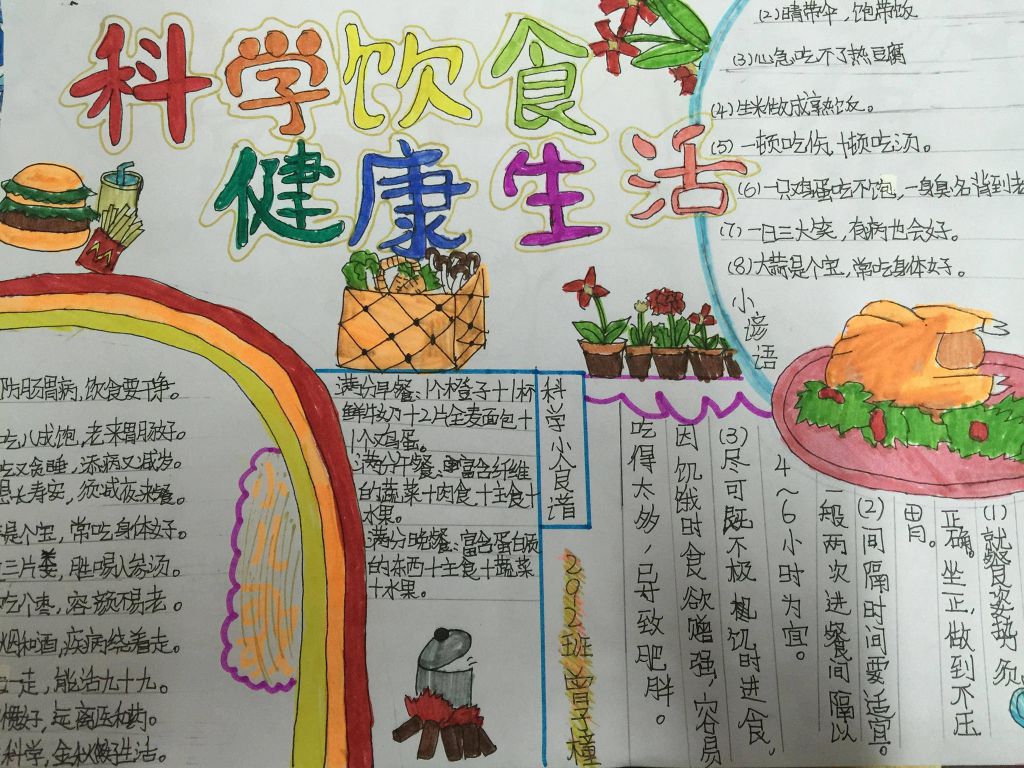 科学饮食
健康生活
(2)晴带伞，饱带饭
(3)心急吃不了热豆腐
(4)生米做成熟饭。
(5)一顿吃伤，十顿吃汤。
(6)一只鸡蛋吃不饱，一身臭名背到老
(7)一日三大笑，有病也会好。
(8)大蒜是个宝，常吃身体好。
小谚语
防肠胃病，饮食要干净。
吃八成饱，老来胃肠好。
吃又贪睡，添病又减岁。
长寿安，须减夜来餐。
是个宝，常吃身体好。
三片姜，胜喝人参汤。
吃个枣，容颜不易老。
烟和酒，疾病绕着走。
走，能活九十九。
科学，全秋做好生活。
科学小食谱
满分早餐：1个橙子＋1杯
鲜牛奶＋2片全麦面包＋
1个鸡蛋。
满分午餐：富含纤维
的蔬菜＋肉食＋主食＋
水果。
满分晚餐：富含蛋白质
的东西＋主食＋蔬菜
＋水果。
202班曾子橦
(1)就餐姿势须
正确。坐正，做到不压
胃。
(2)间隔时间要适宜。
一般两次进餐间隔以
4～6小时为宜。
(3)尽可既不极饥时进食，
因饥饿时食欲增强，容易
吃得太多，已导致肥胖。